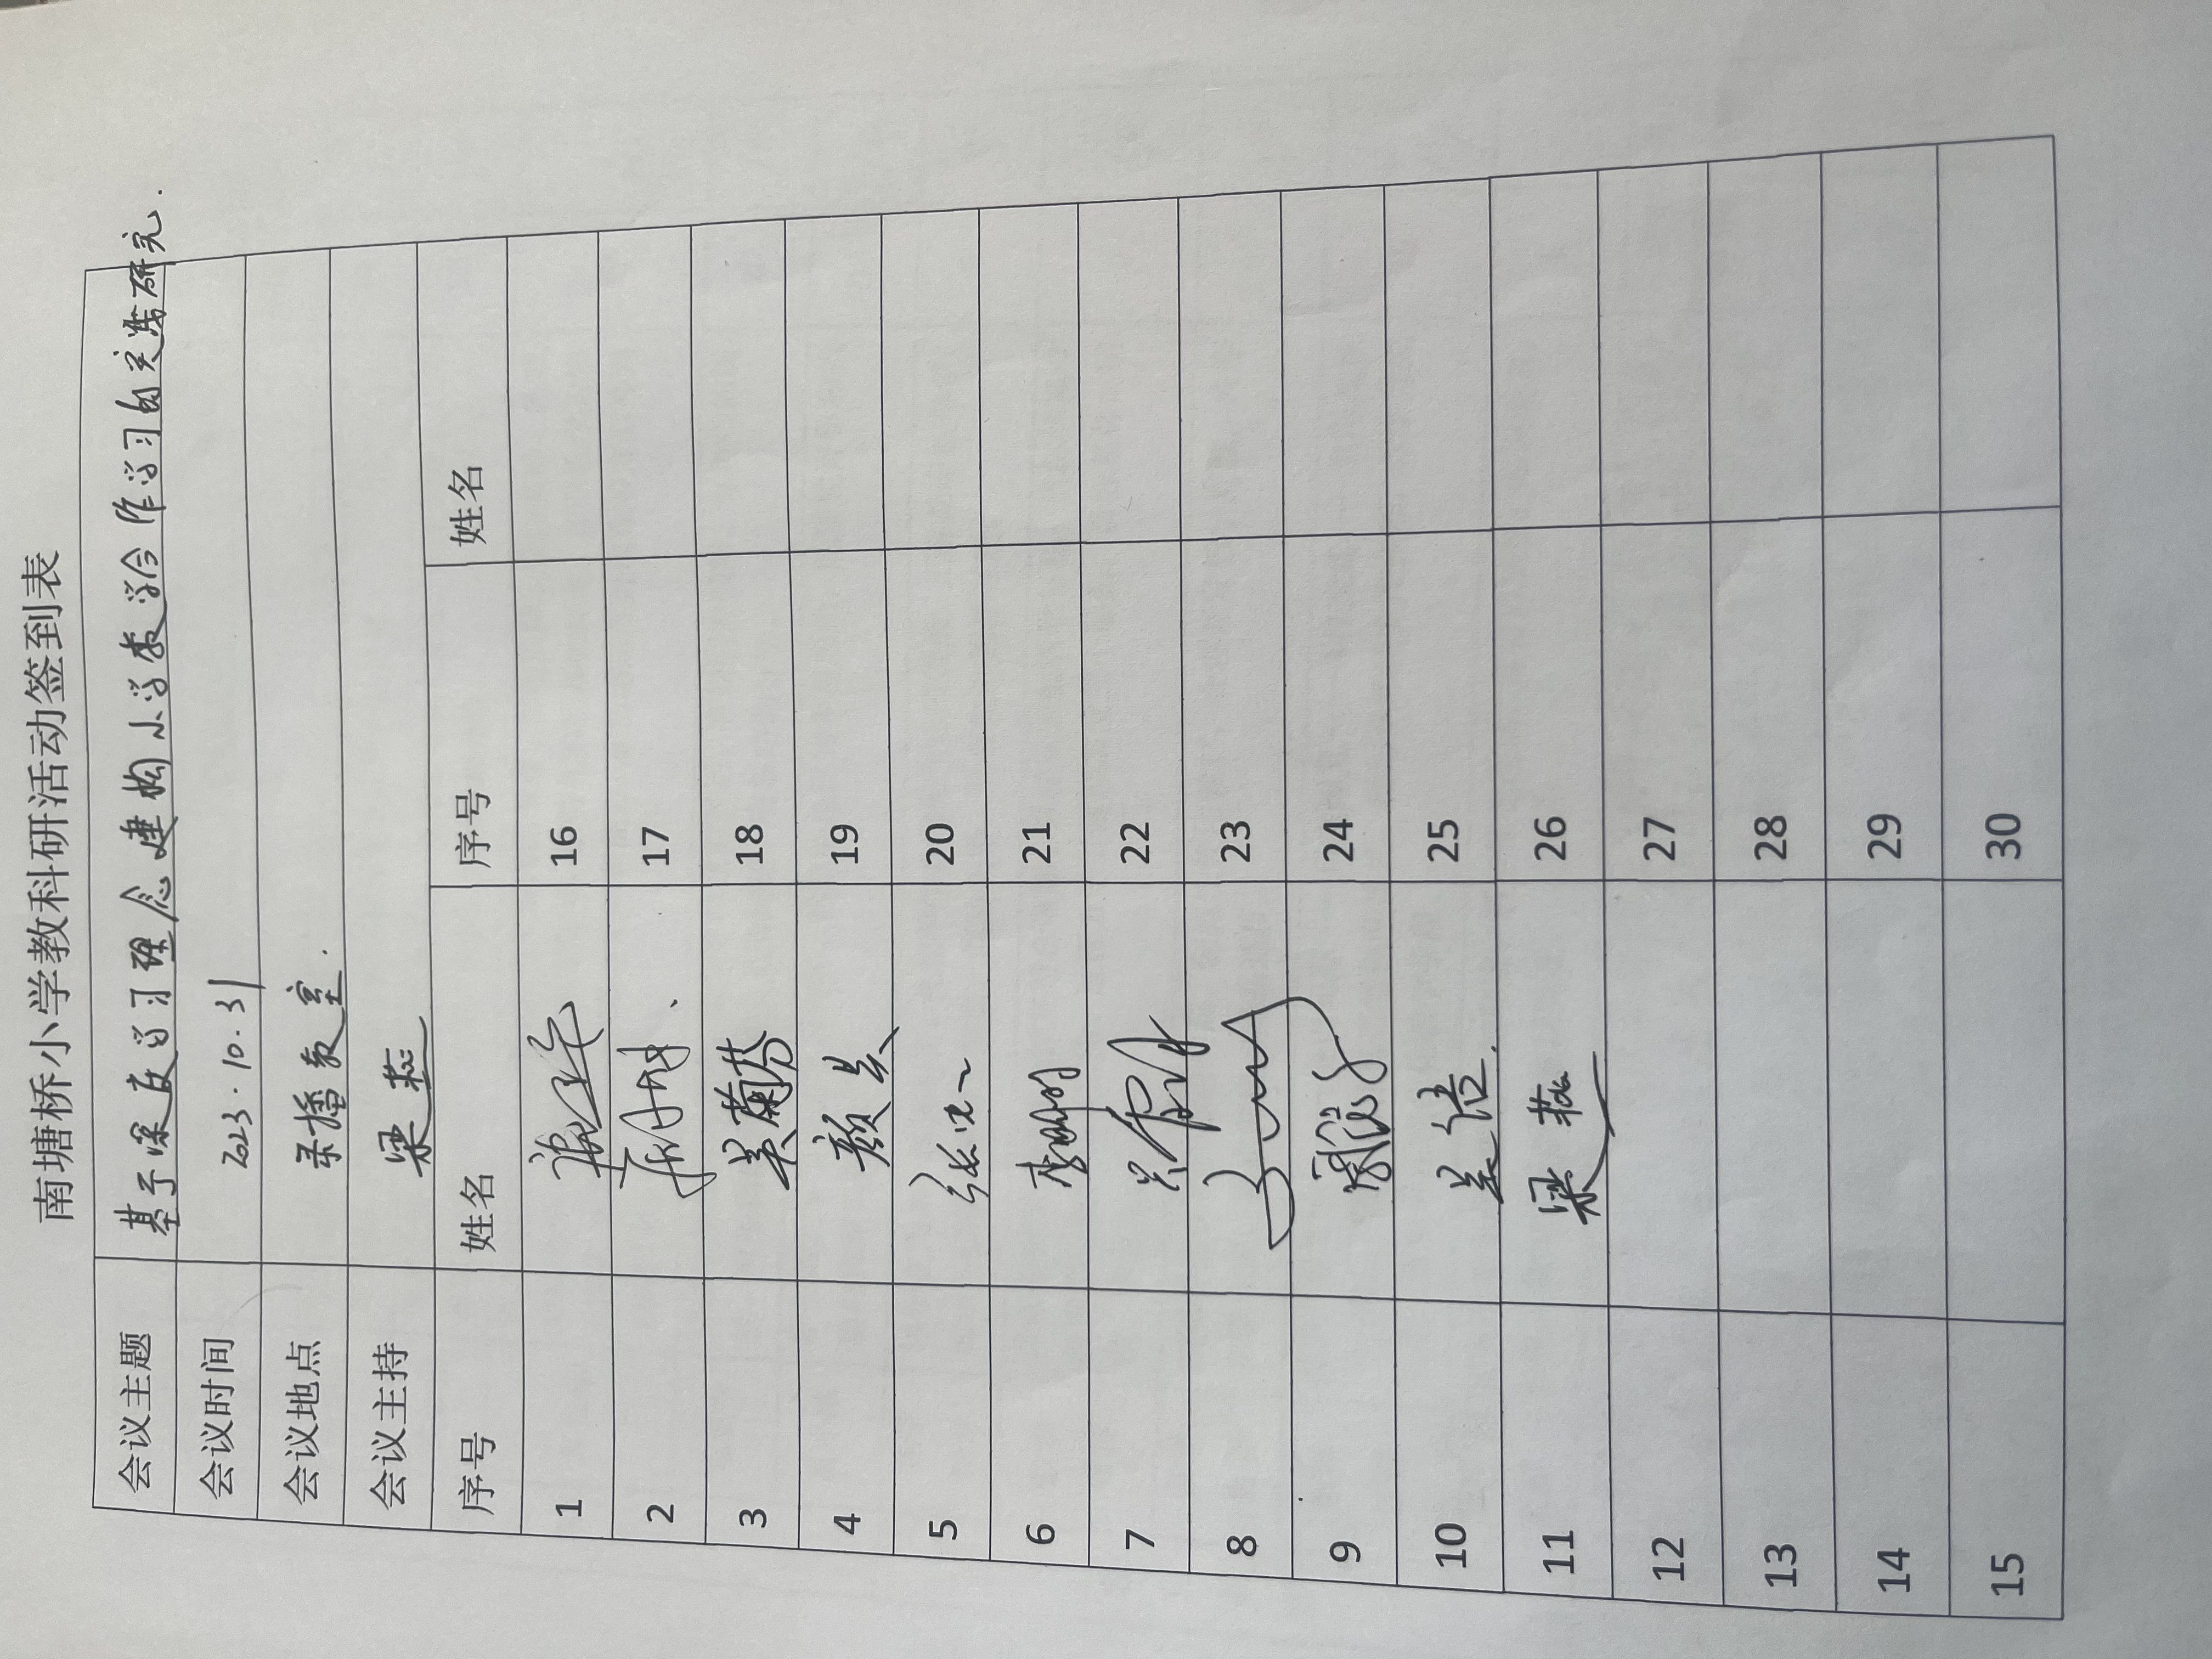 南塘桥小学教科研活动签到表
会议主题 基于深度学习理念建构小学数学合作学习的实践研究.
会议时间 2023.10.31
会议地点 录播教室.
会议主持 梁燕
序号 姓名 序号 姓名
1 16
2 17
3 吴菊芬 18
4 颜兵 19
5 张 20
6 李 21
7 22
8 23
9 24
10 吴洁. 25
11 梁燕 26
12 27
13 28
14 29
15 30